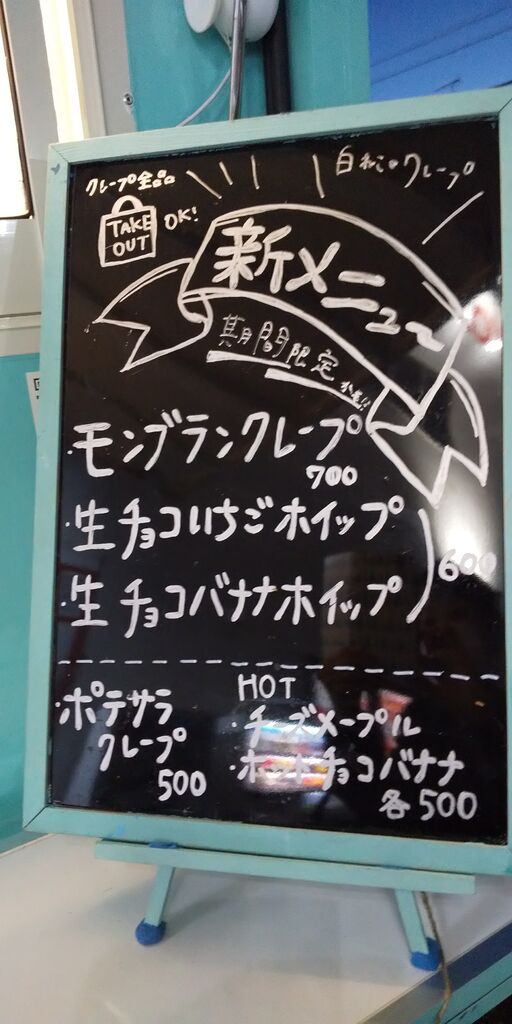 クレープ全品
TAKE OUT OK!
クレープ
新メニュー
期間限定
・モンブランクレープ
700
・生チョコいちごホイップ
・生チョコバナナホイップ
600
・ポテサラ
クレープ
500
HOT
・チーズメープル
・ホットチョコバナナ
各500